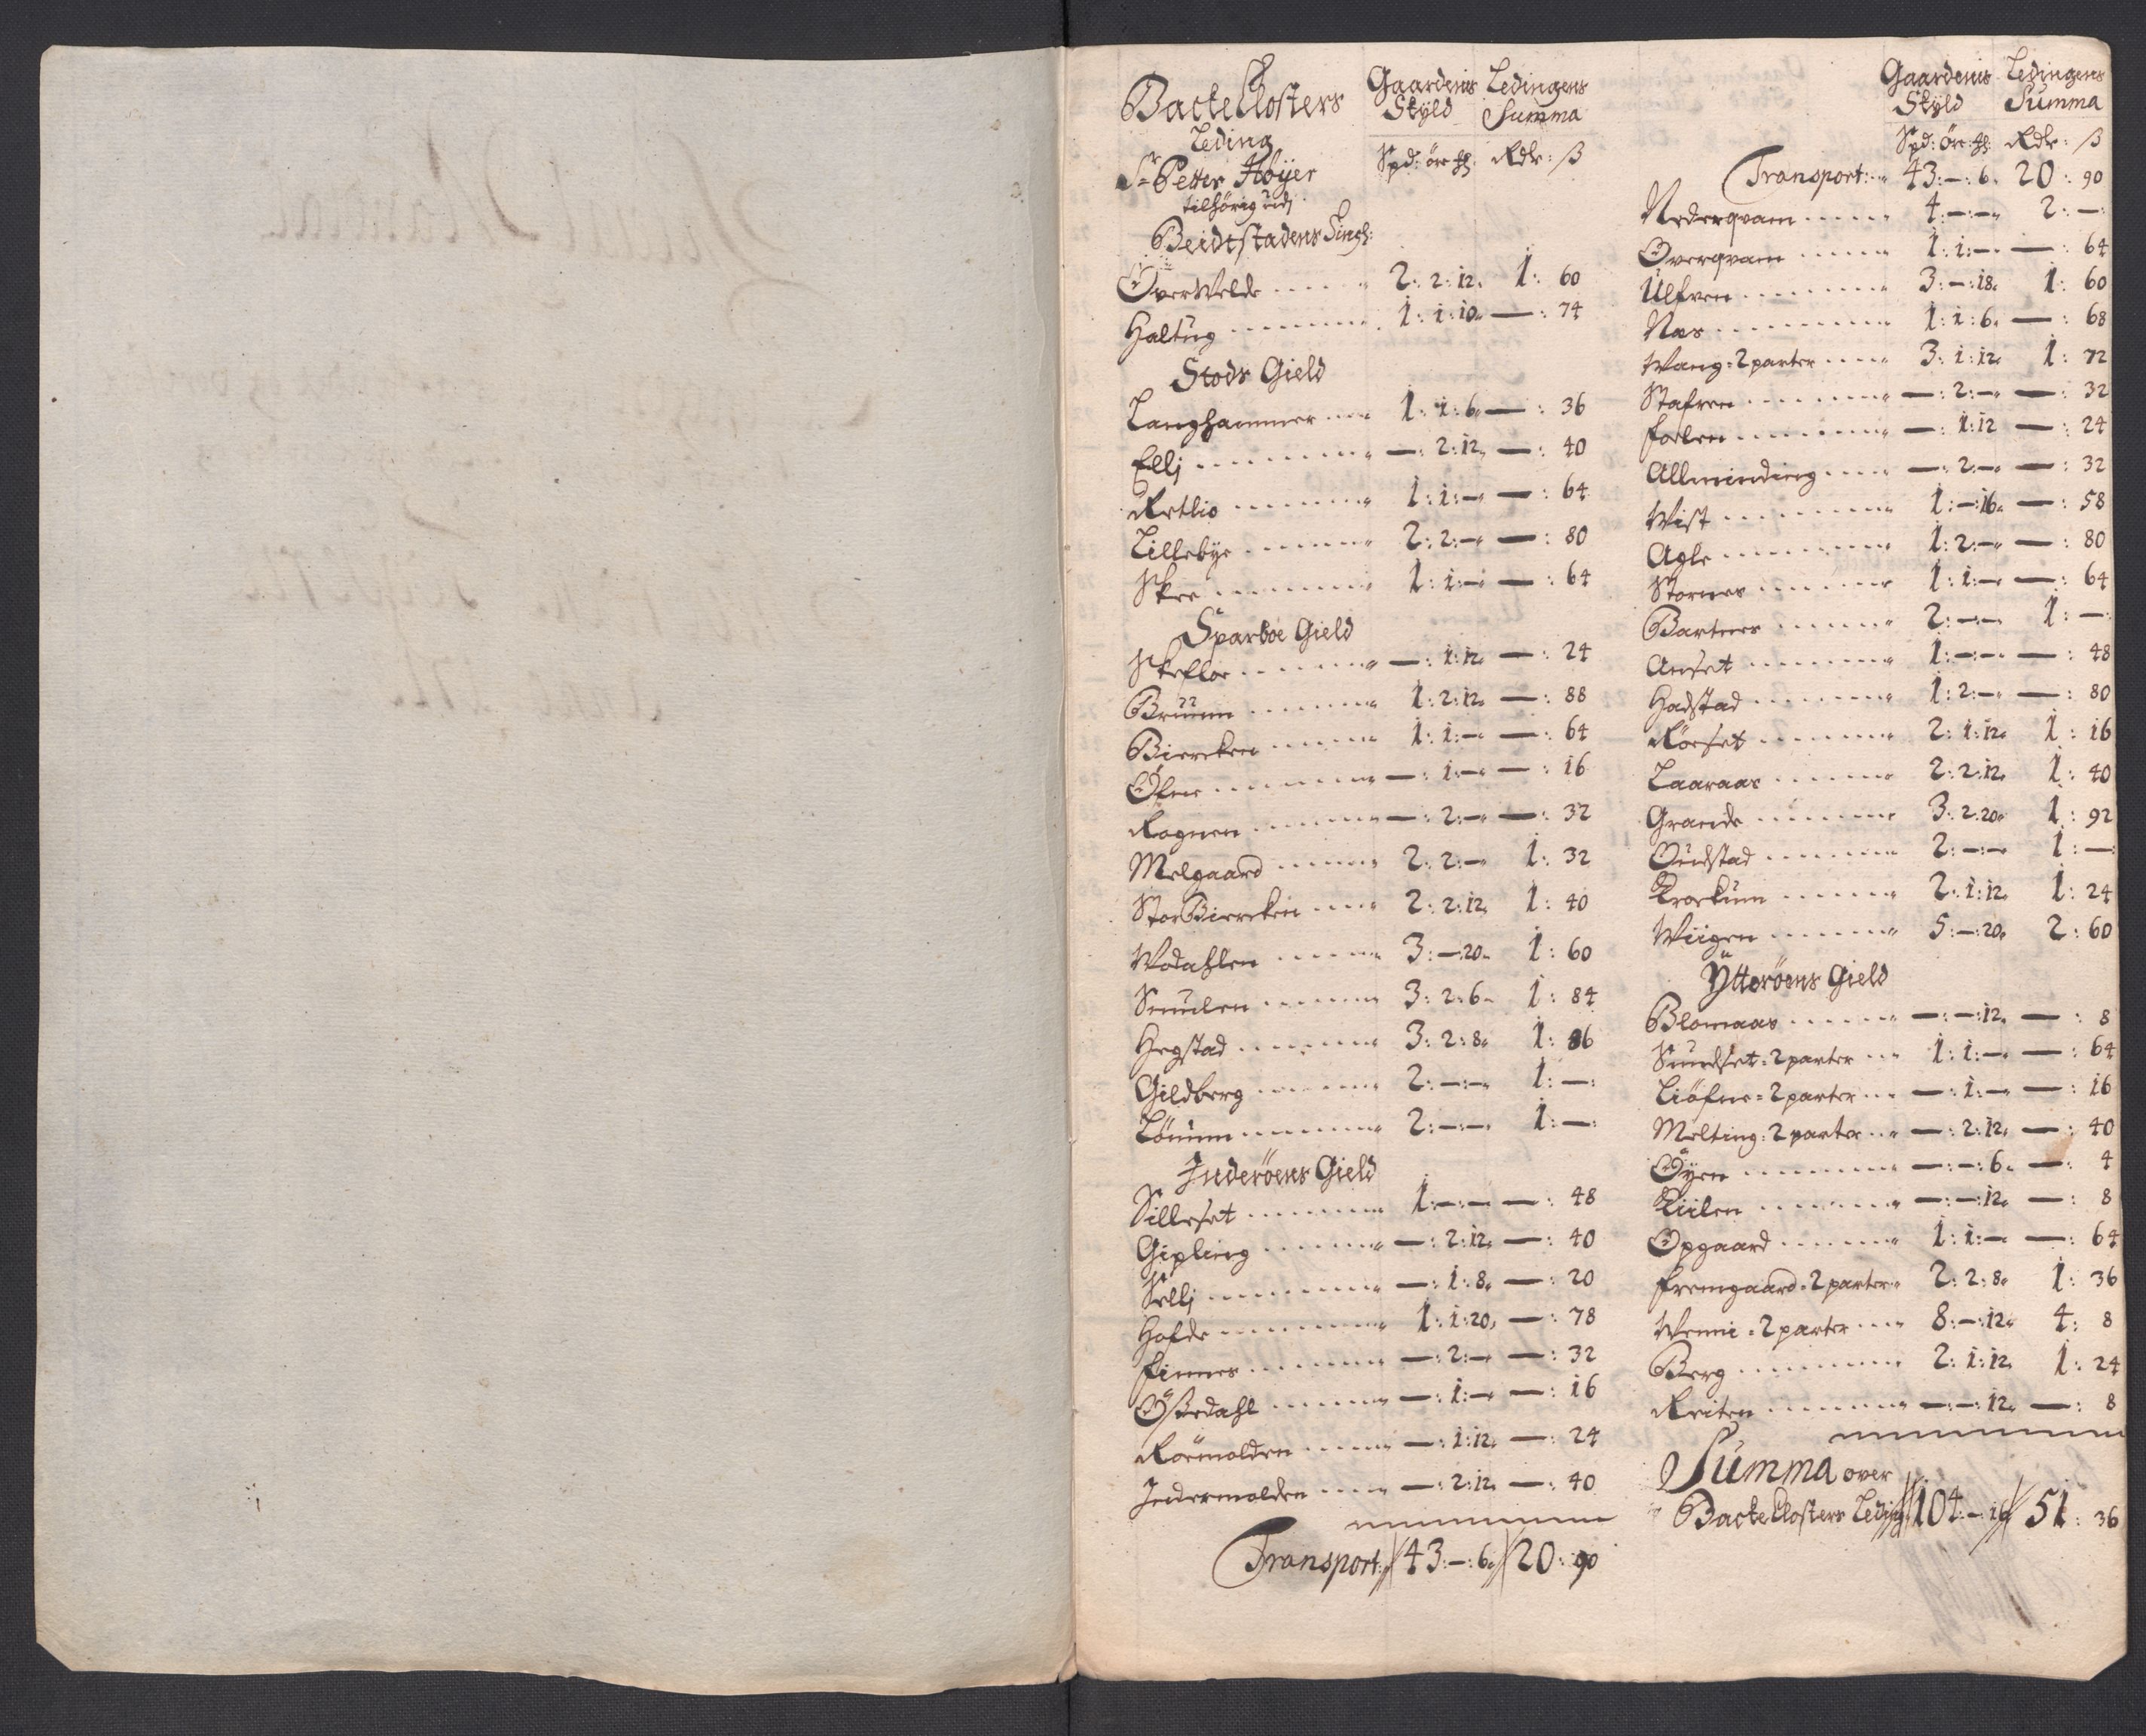 Backe Closters
Leding
Sr Petter Høyer
tilhörig udj
Beidtstadens Tingh:
Gaardens Skyld Ledingens Summa
Spd: öre: Rdlr: ß
Overvelde 2: 2: 12. 1: 60
Haltüg 1: 1: 10. — : 74
Stods Gield
Langhammer 1: 1: 6. — : 36
Ellj — : 2: 12. — : 40
Retlio 1: 1: — — : 64
Lillebye 2: 2: — — : 80
Skee 1: 1: — — : 64
Sparboe Gield
Skefloe — : 1: 12. — : 24
Brüüm 1: 2: 12. — : 88
Biercken 1: 1: — — : 64
Öfne — : 1: — — : 16
Rognen — : 2: — — : 32
Melgaard 2: 2: — 1: 32
StorBiercken 2: 2: 12. 1: 40
Wodahlen 3: — 20. 1: 60
Smülen 3: 2: 6. 1: 84
Hegstad 3: 2: 8. 1: 86
Gildberg 2: — : — 1: —
Lönnem 2: — : — 1: —
Inderöens Gield
Silleset 1: — : — — : 48
Gipling — : 2: 12. — : 40
Sellj — : 1: 8. — : 20
Hofde 1: 1: 20. — : 78
Finnes — : 2: — — : 32
Österdahl — : 1: — — : 16
Roemolden — : 1: 12. — : 24
Indermolden — : 2: 12. — : 40
Transport: 43: — : 6. 20: 90
Gaardens Skyld Ledingens Summa
Spd: öre: Rdlr: ß
Transport: 43: — : 6. 20: 90
Nederqvam 4: — : — 2: —
Overqvam 1: 1: — — : 64
Ülfven 3: — : 18. 1: 60
Nes 1: 1: 6. — : 68
Wang = 2 parter 3: 1: 12. 1: 72
Stafren — : 2: — — : 32
Foelen — : 1: 12 — : 24
Allminding — : 2: — — : 32
Wist 1: — : 16. — : 58
Agle 1: 2: — — : 80
Stornes 1: 1: — — : 64
Bartnes 2: — : — 1: —
Anset 1: — : — — : 48
Hadstad 1: 2: — — : 80
Röeset 2: 1: 12. 1: 16
Laaraas 2: 2: 12. 1: 40
Grande 3: 2: 20. 1: 92
Oüdstad 2: — : — 1: —
Krockum 2: 1: 12. 1: 24
Wiigen 5: — : 20. 2: 60
Ytteröens Gield
Blomaas — : — : 12. — : 8
Sundset = 2 parter 1: 1: — — : 64
Liöfne = 2 parter — : 1: — — : 16
Melting: 2 parter — : 2: 12. — : 40
Öyen — : — : 6. — : 4
Kiilen — : — : 12. — : 8
Opgaard 1: 1: — — : 64
Fremgaard = 2 parter 2: 2: 8. 1: 36
Wenni = 2 parter 8: — : 12. 4: 8
Berg 2: 1: 12. 1: 24
Reiten — : — : 12. — : 8
Summa over
Backe Closters Leding 104: — 16 51: 36